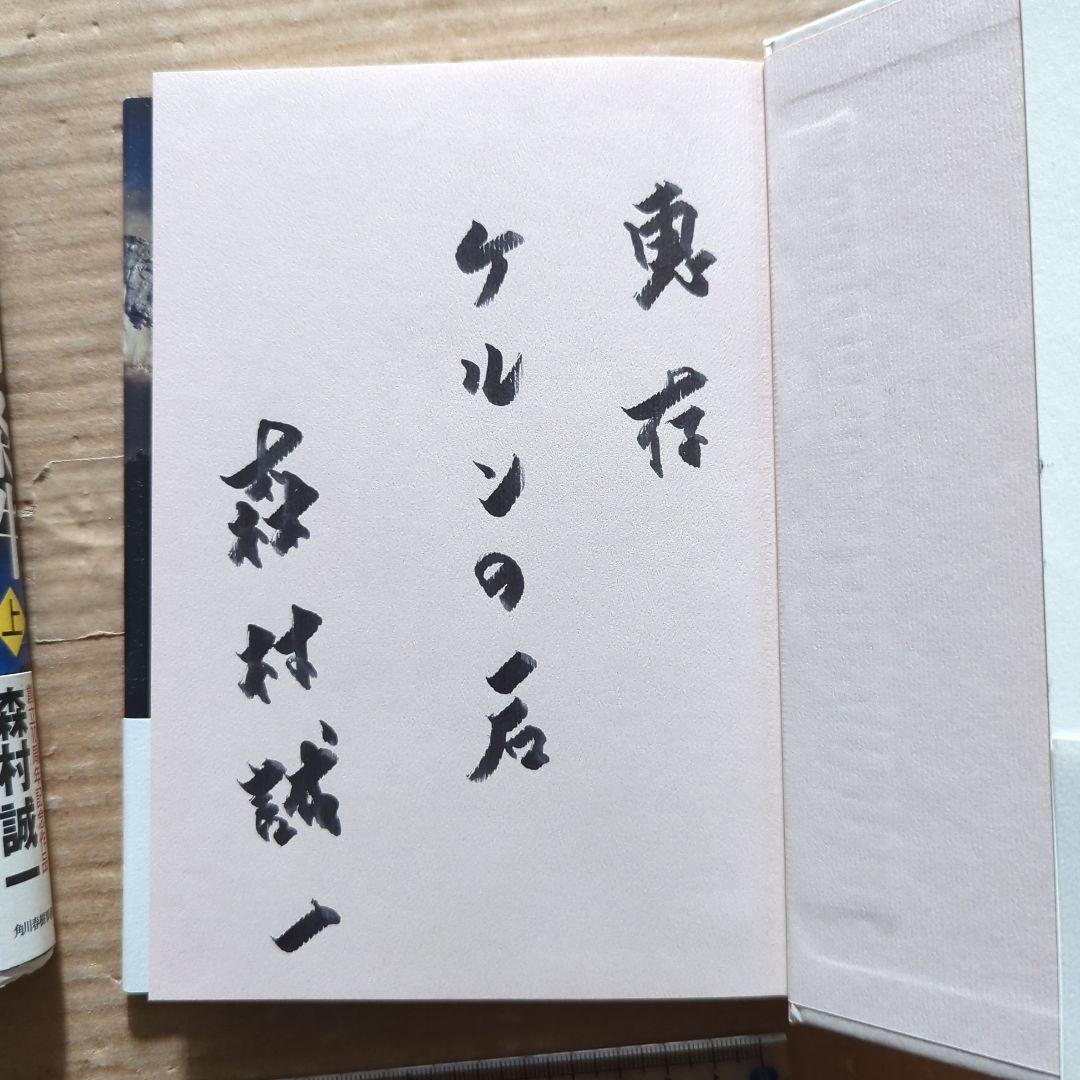 恵存
ケルンの石
森村誠一
上
森村誠一
角川春樹